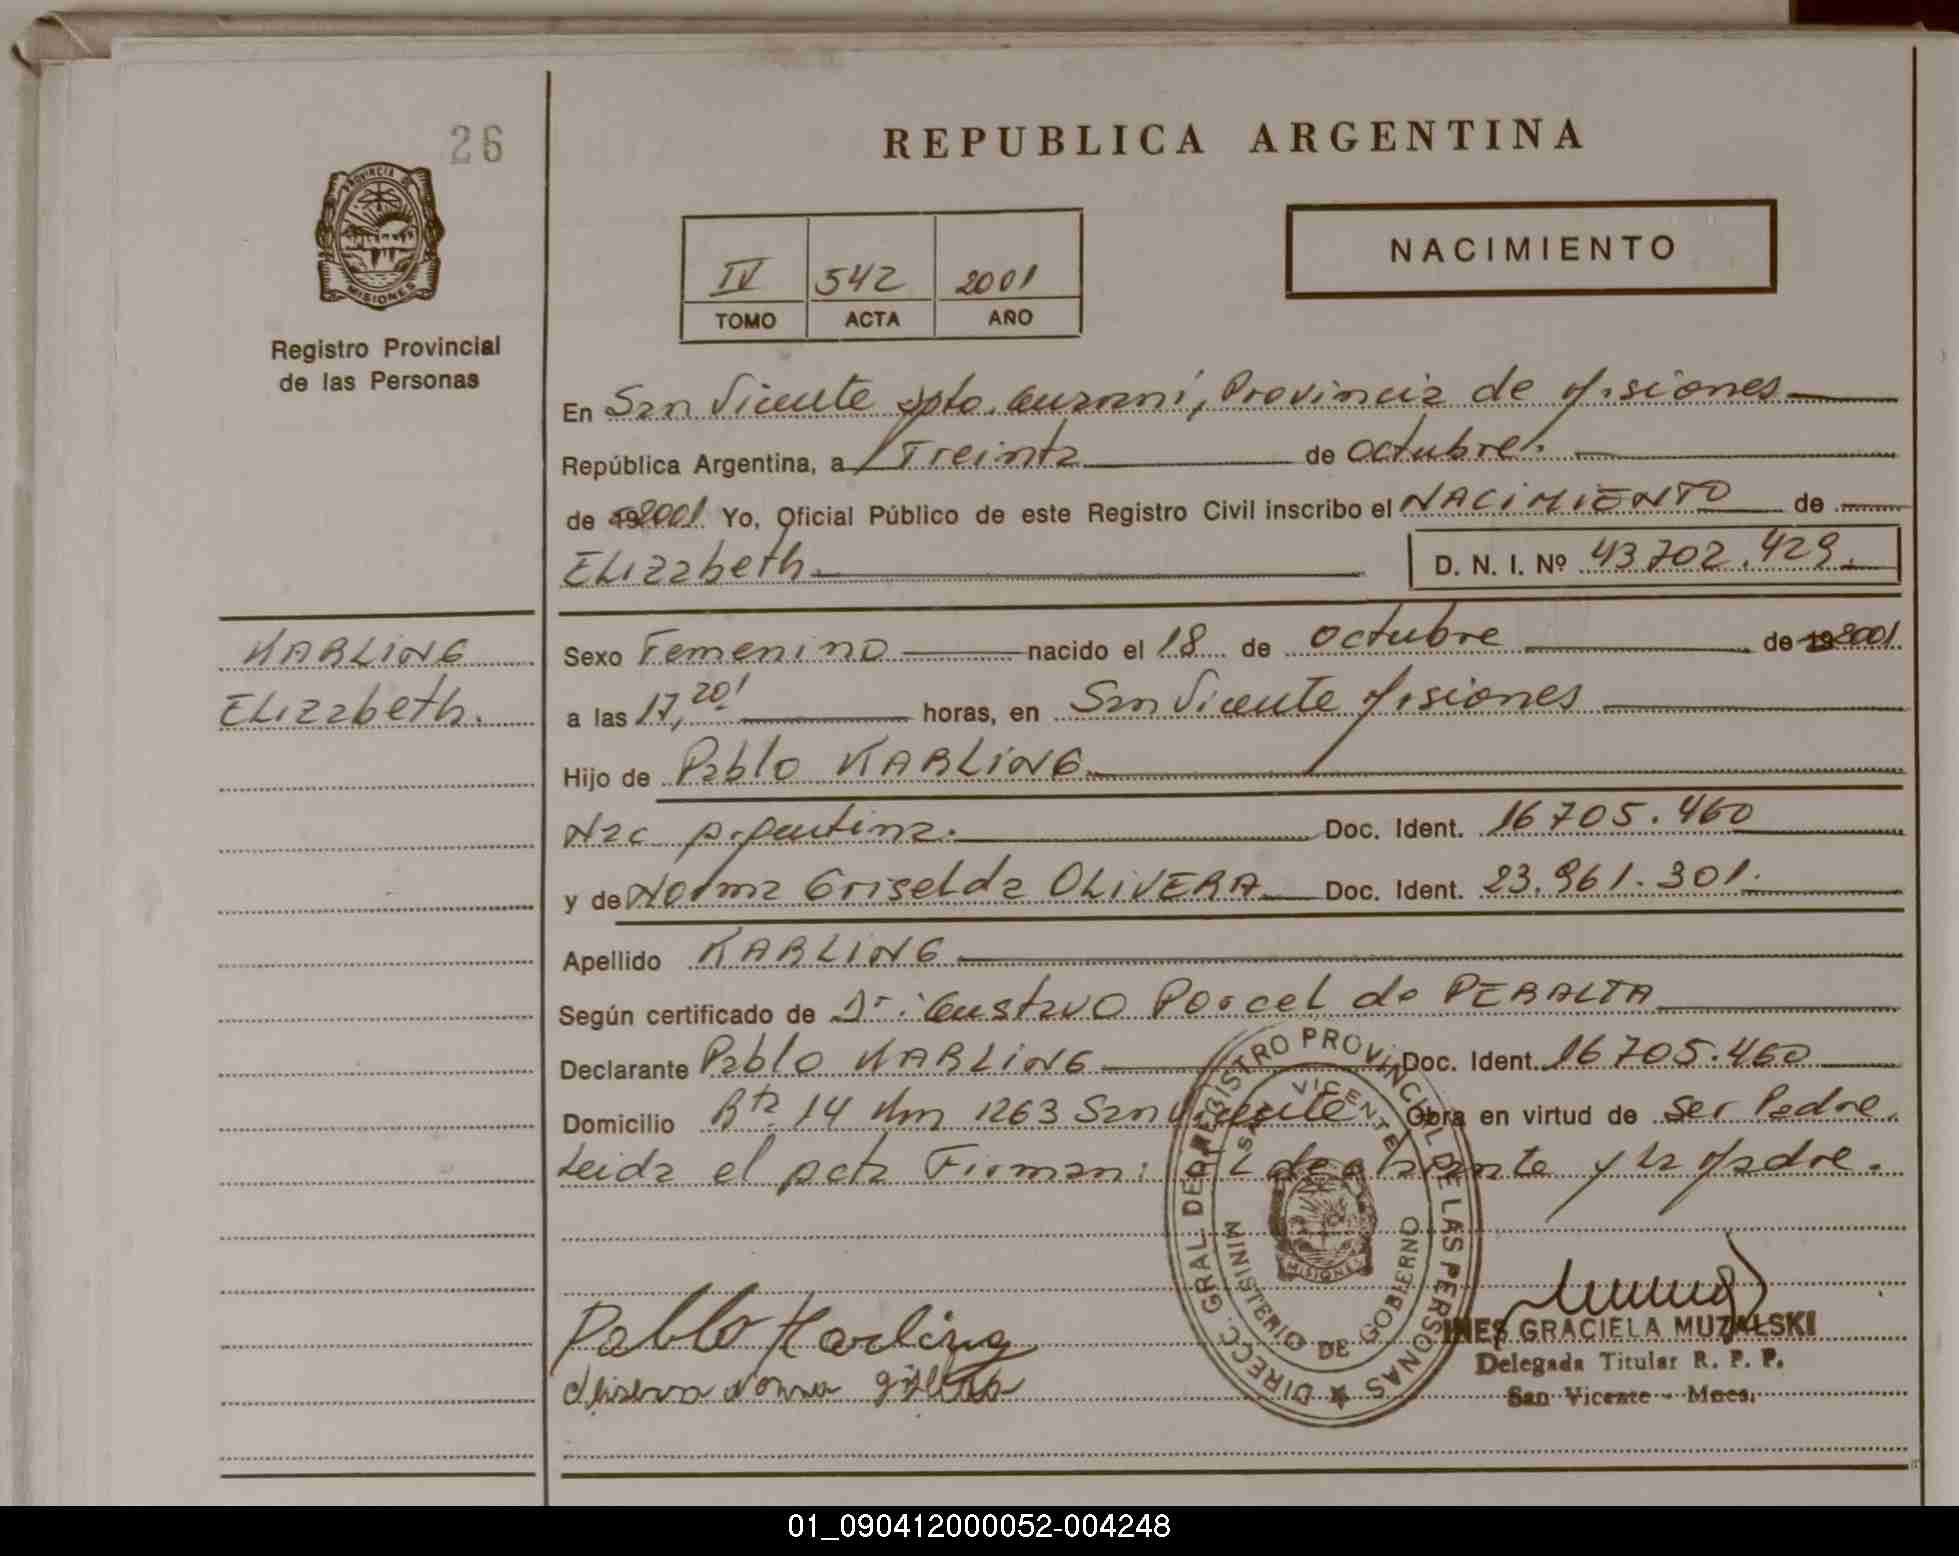 26
PROVINCIA DE
MISIONES
Registro Provincial
de las Personas
REPUBLICA ARGENTINA
NACIMIENTO
IV 542 2001
TOMO ACTA AÑO
En San Vicente Dpto. Guaraní, Provincia de Misiones
República Argentina, a Treinta de octubre.
de 19 2001 Yo, Oficial Público de este Registro Civil inscribo el NACIMIENTO de
Elizabeth D. N. I. Nº 43702.429.
KARLING
Elizabeth.
Sexo Femenino nacido el 18 de octubre de 19 2001
a las 17,20' horas, en San Vicente Misiones
Hijo de Pablo KARLING
Nac Argentina. Doc. Ident. 16705.460
y de Norma Griselda OLIVERA Doc. Ident. 23.961.301.
Apellido KARLING
Según certificado de Dr. Gustavo Porcel de PERALTA
Declarante Pablo KARLING Doc. Ident. 16705.460
Domicilio Rta 14 Km 1263 San Vicente Obra en virtud de ser Padre.
Leida el acta Firman: el declarante y la Madre.
DIRECC. GRAL DEL REGISTRO PROVINCIAL DE LAS PERSONAS
SAN VICENTE
MINISTERIO DE GOBIERNO
MISIONES
Pablo Karling
Olivera Norma
INES GRACIELA MUZALSKI
Delegada Titular R. P. P.
San Vicente - Mnes.
01_090412000052-004248